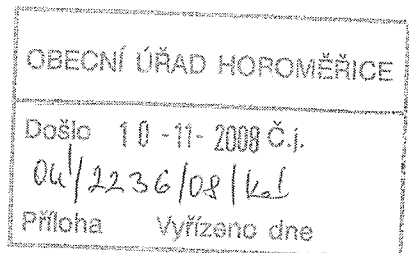 OBECNÍ ÚŘAD HOROMĚŘICE
Došlo 10-11-2008 Č.j.
OÚ/2236/08/Kal
Příloha Vyřízeno dne